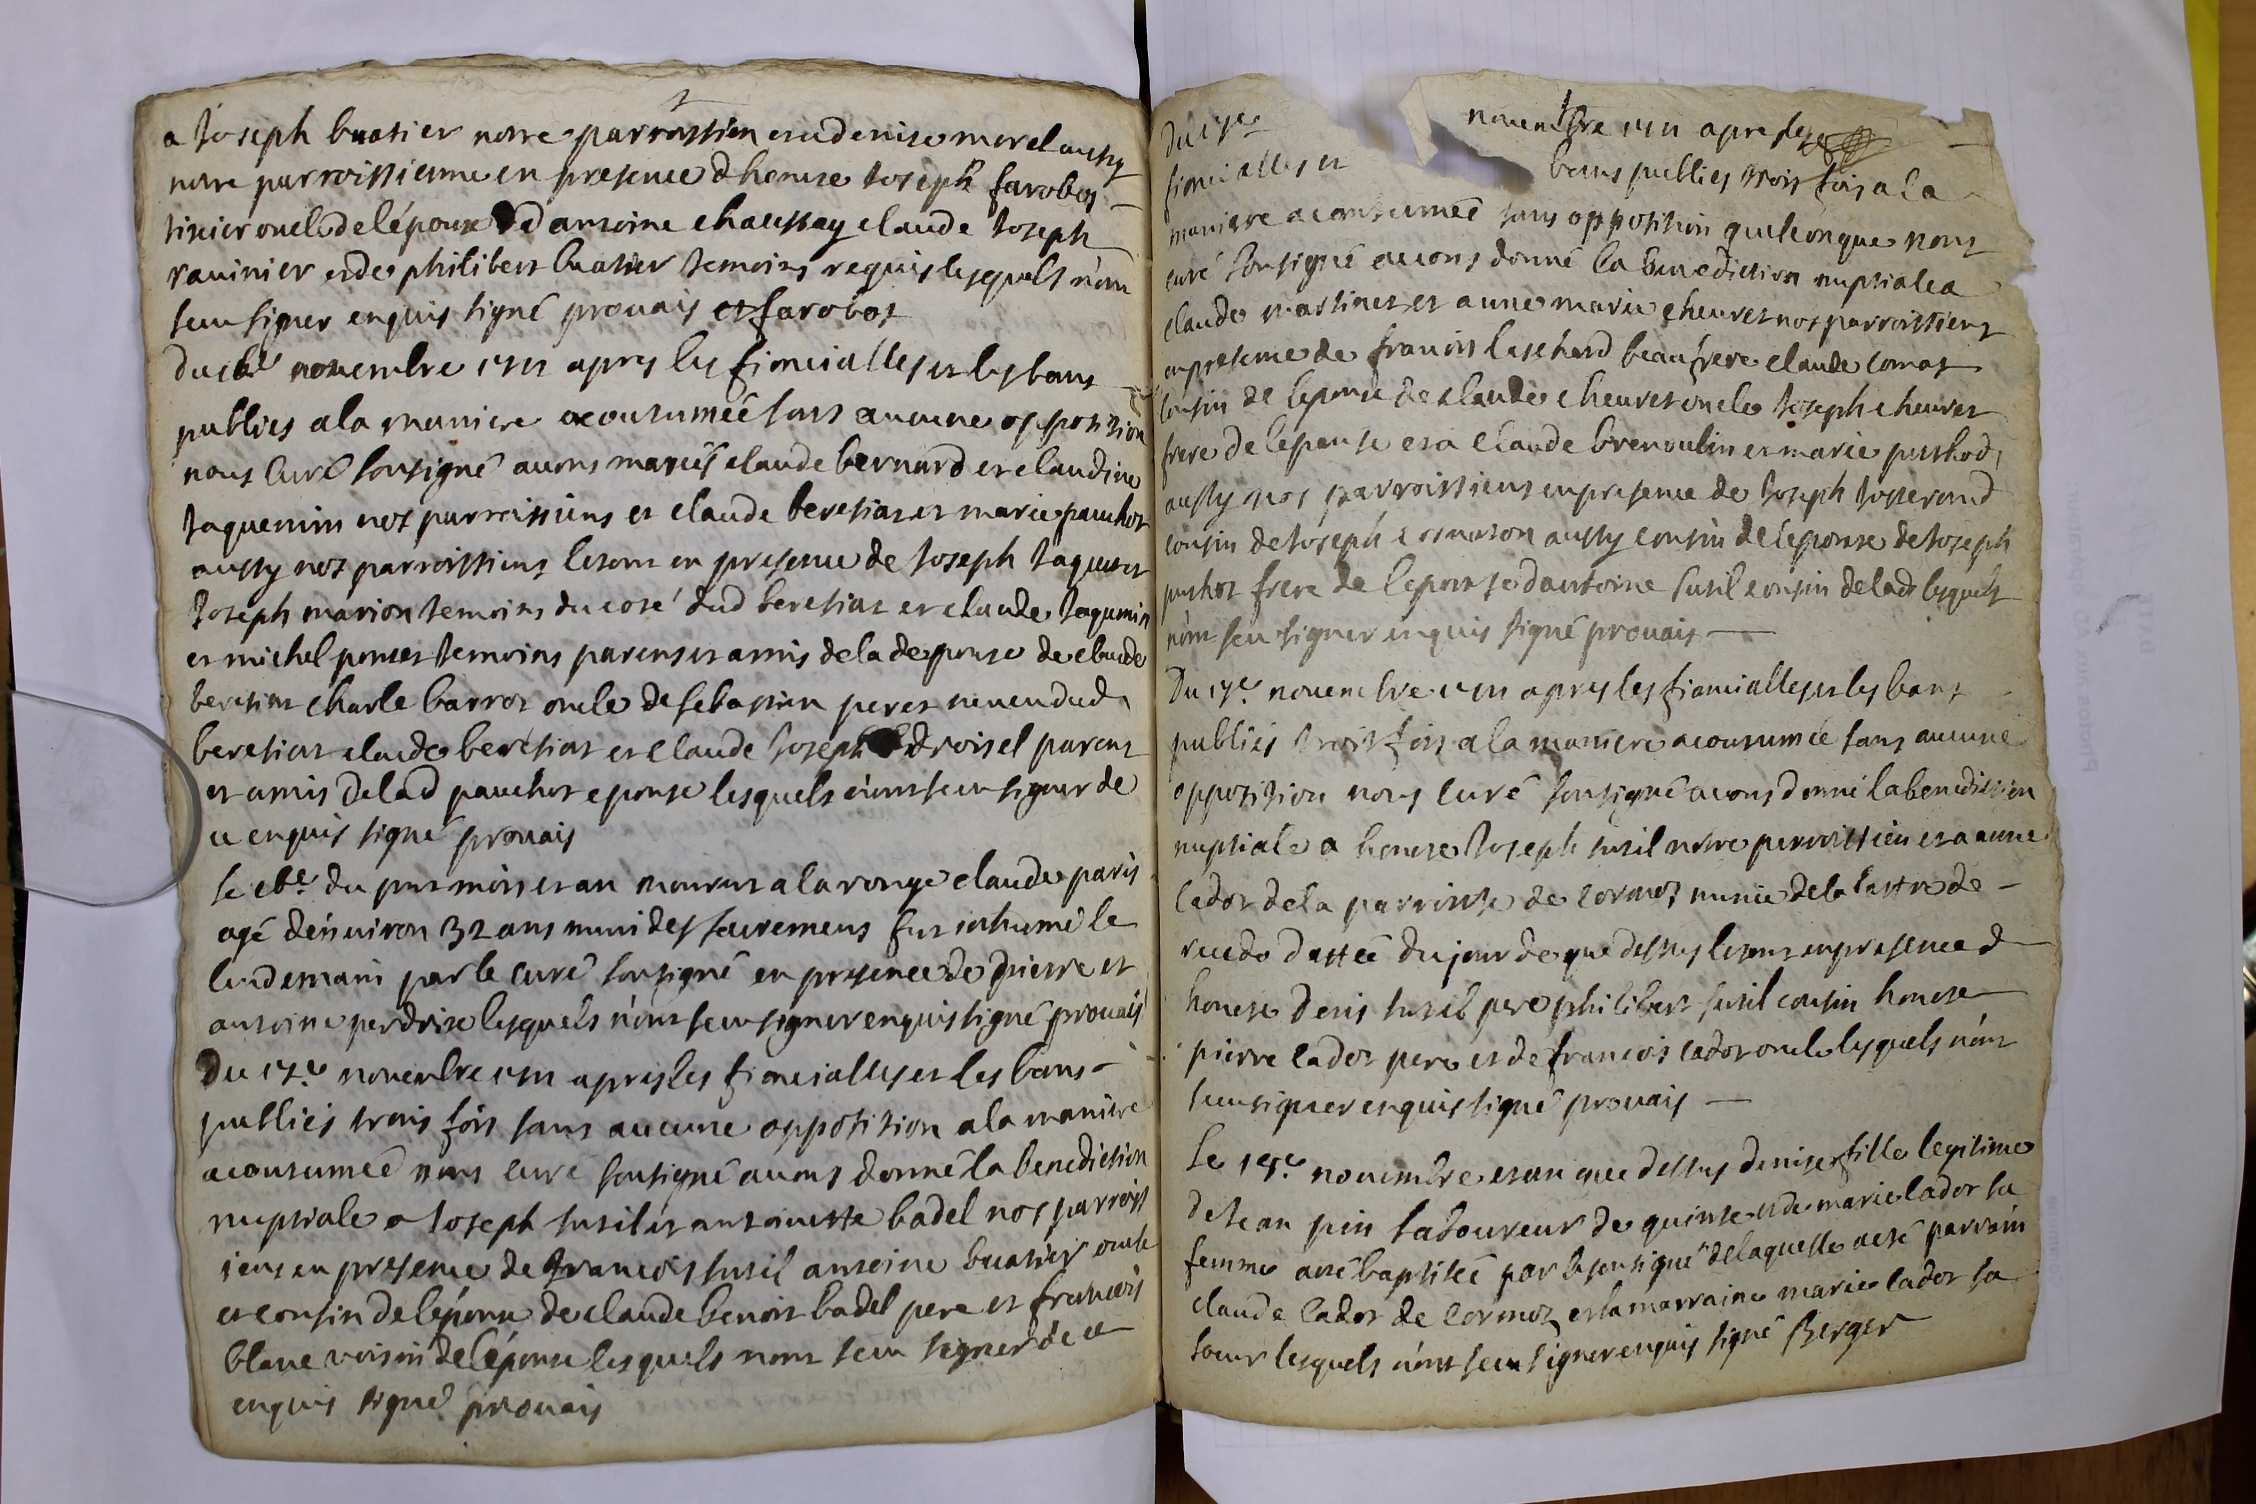 a Joseph buatier notre parroissien et a denise morel aussy
notre parroissienne en presence d honeste Joseph farobos
tixier oncle de lépoux d antoine chaussay claude Joseph
raviniere et de philibert buatier temoins requis lesquels nont
seu signer enquis signé prouais et farobos
Du novembre 1711 apres les fiancialles et les bans
publies a la maniere acoutumée sans aucune opposition
nous Curé sousigné avons mariés claude bernard et claudine
Jaquemin nos parroissiens et claude beretias et marie pauchot
aussy nos parroissiens le tout en presence de Joseph Jaquet et
Joseph marion temoins du coté dud beretias et claude Jaquemin
et michel poncet temoins parens et amis de lad epouse de claude
beretias charle barrot oncle de sebastien peret neveu dud
beretias claude beretias et Claude Joseph droisel parens
et amis de lad pauchot epouse lesquels n'ont seu signer de
ce enquis signé prouais
Le du pnt mois et an mourut a la ronge claude paris
agé d'environ 32 ans muni des sacremens fut inhumé le
lendemain par le curé sousigné en presence de pierre et
antoine perdrix lesquels n'ont seu signer enquis signé prouais
Du 17e novembre 1711 apres les fiancialles et les bans
publiés trois fois sans aucune opposition a la maniere
acoutumée nous curé sousigné avons donné la benediction
nuptiale a Joseph susil et antoinette badel nos parroiss
iens en presence de francois susil antoine buatier oncle
et cousin de lépoux de claude benoit badel pere et francois
blanc voisin de lépouse lesquels nont seu signer de ce
enquis signé prouais
Du 17e novembre 1711 apres les
fiancialles et bans publies trois fois a la
maniere acoutumée sans opposition quelconque nous
curé sousigné avons donné la benediction nuptiale a
claude martinet et a anne marie cheuret nos parroissiens
en presence de francois lechard beaufrere claude comas
cousin de lepouse de claude cheuret oncle Joseph cheuret
frere de lepouse et a Claude brenoulin et marie puthod
aussy nos parroissiens en presence de Joseph Josserand
cousin de Joseph aussy cousin de lépouse de Joseph
puthot frere de lepouse d antoine susil cousin de lad lesquels
n'ont seu signer enquis signé prouais
Du 17e novembre 1711 apres les fiancialles et les bans
publiés trois fois a la maniere acoutumée sans aucune
opposition nous curé sousigné avons donné la benediction
nuptiale a honeste Joseph susil notre parroissien et a anne
cadot de la parroisse de cormoz munie de la lattre de
recedo dattée du jour de que dessus le tout en presence d
honeste Denis susil pere philibert susil cousin honeste
pierre cadot pere et de francois cadot oncle lesquels n'ont
seu signer enquis signé prouais
Le 19e novembre et an que dessus denise fille legitime
de Jean pin laboureur de quinte et de marie cador sa
femme a eté baptisée par le sousigné de laquelle a eté parrain
claude cador de cormoz et la marraine marie cador sa
soeur lesquels n'ont seu signer enquis signé Berger